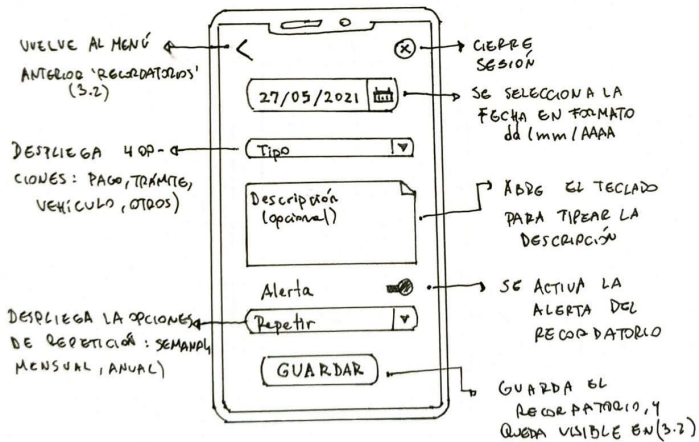 VUELVE AL MENÚ
ANTERIOR 'RECORDATORIOS'
(3.2)
<
X
CIERRE
SESIÓN
27/05/2021
SE SELECCIONA LA
FECHA EN FORMATO
dd/mm/AAAA
DESPLIEGA 4 OP-
CIONES: PAGO, TRÁMITE,
VEHÍCULO, OTROS)
Tipo
Descripción
(opcional)
ABRE EL TECLADO
PARA TIPEAR LA
DESCRIPCIÓN
Alerta
SE ACTIVA LA
ALERTA DEL
RECORDATORIO
DESPLIEGA LA OPCIONES
DE REPETICIÓN: SEMANAL,
MENSUAL, ANUAL)
Repetir
GUARDAR
GUARDA EL
RECORDATORIO, Y
QUEDA VISIBLE EN (3.2)